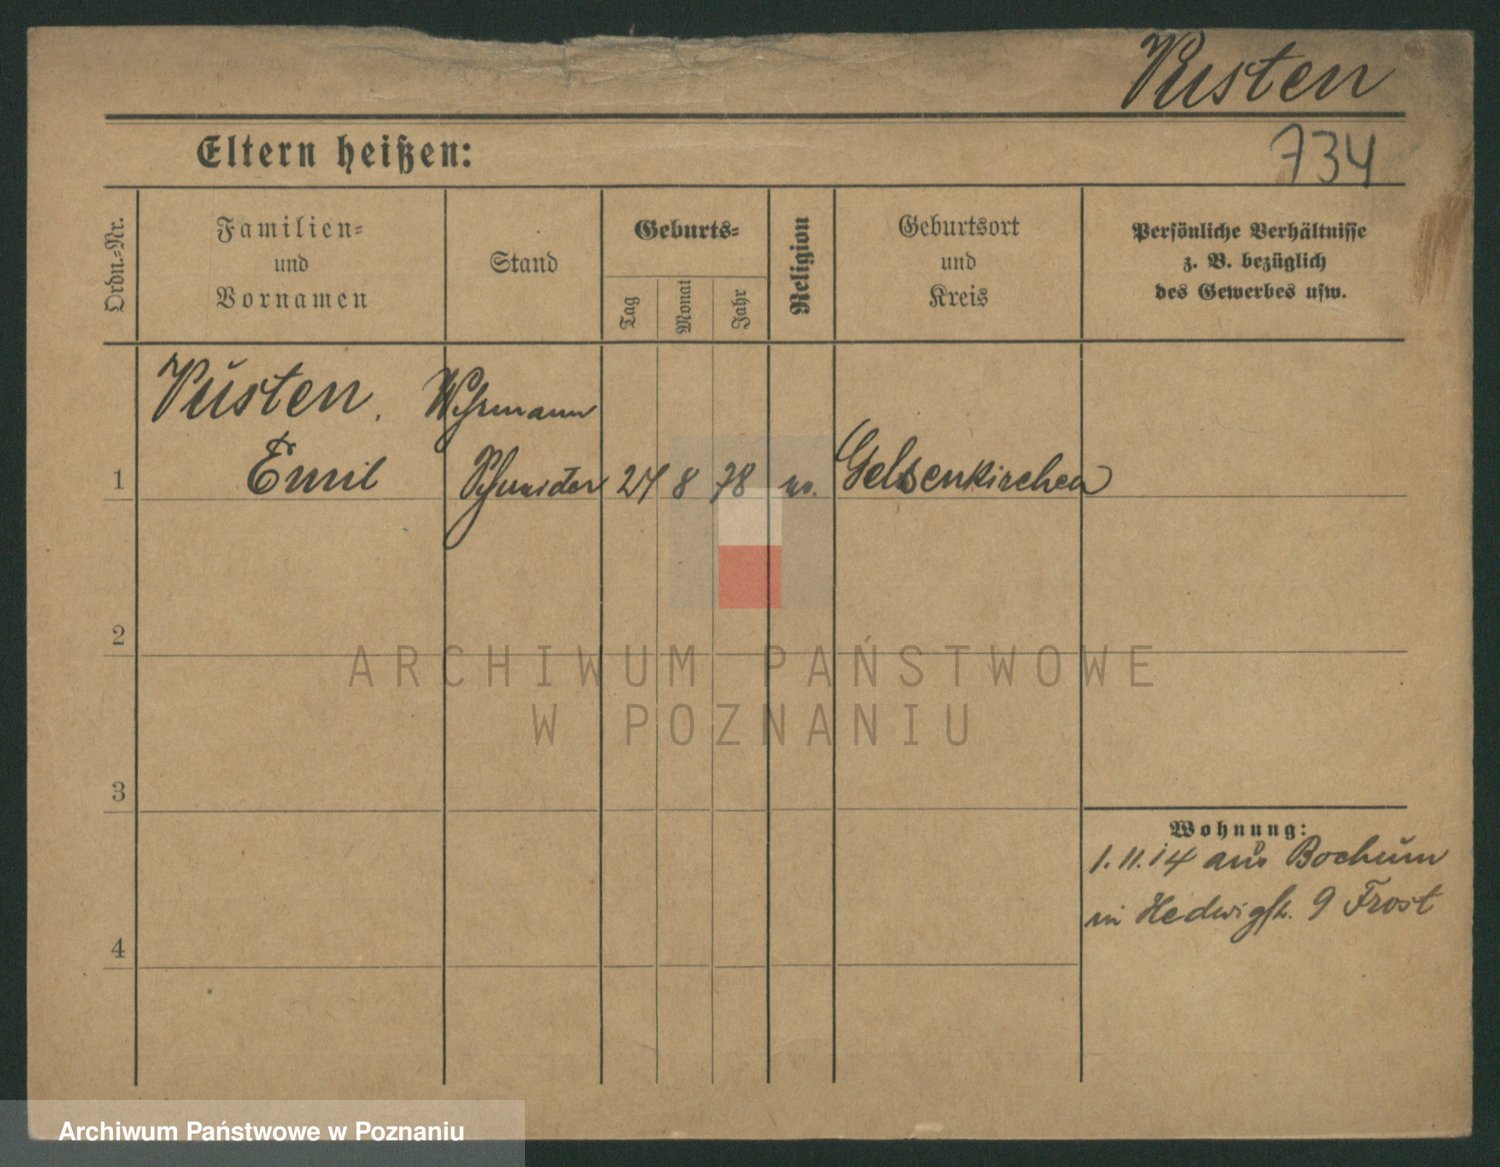 Vusten
734
Eltern heißen:
Ordn.=Nr.
Familien=
und
Vornamen
Stand
Geburts=
Tag
Monat
Jahr
Religion
Geburtsort
und
Kreis
Persönliche Verhältnisse
z. B. bezüglich
des Gewerbes usw.
Vusten. Wehrmann
1 Emil 24 8 78 Gelsenkirchen
2
ARCHIWUM PAŃSTWOWE
W POZNANIU
3
Wohnung:
1.11.14 aus Bochum
in Hedwigstr. 9 Frost
4
Archiwum Państwowe w Poznaniu